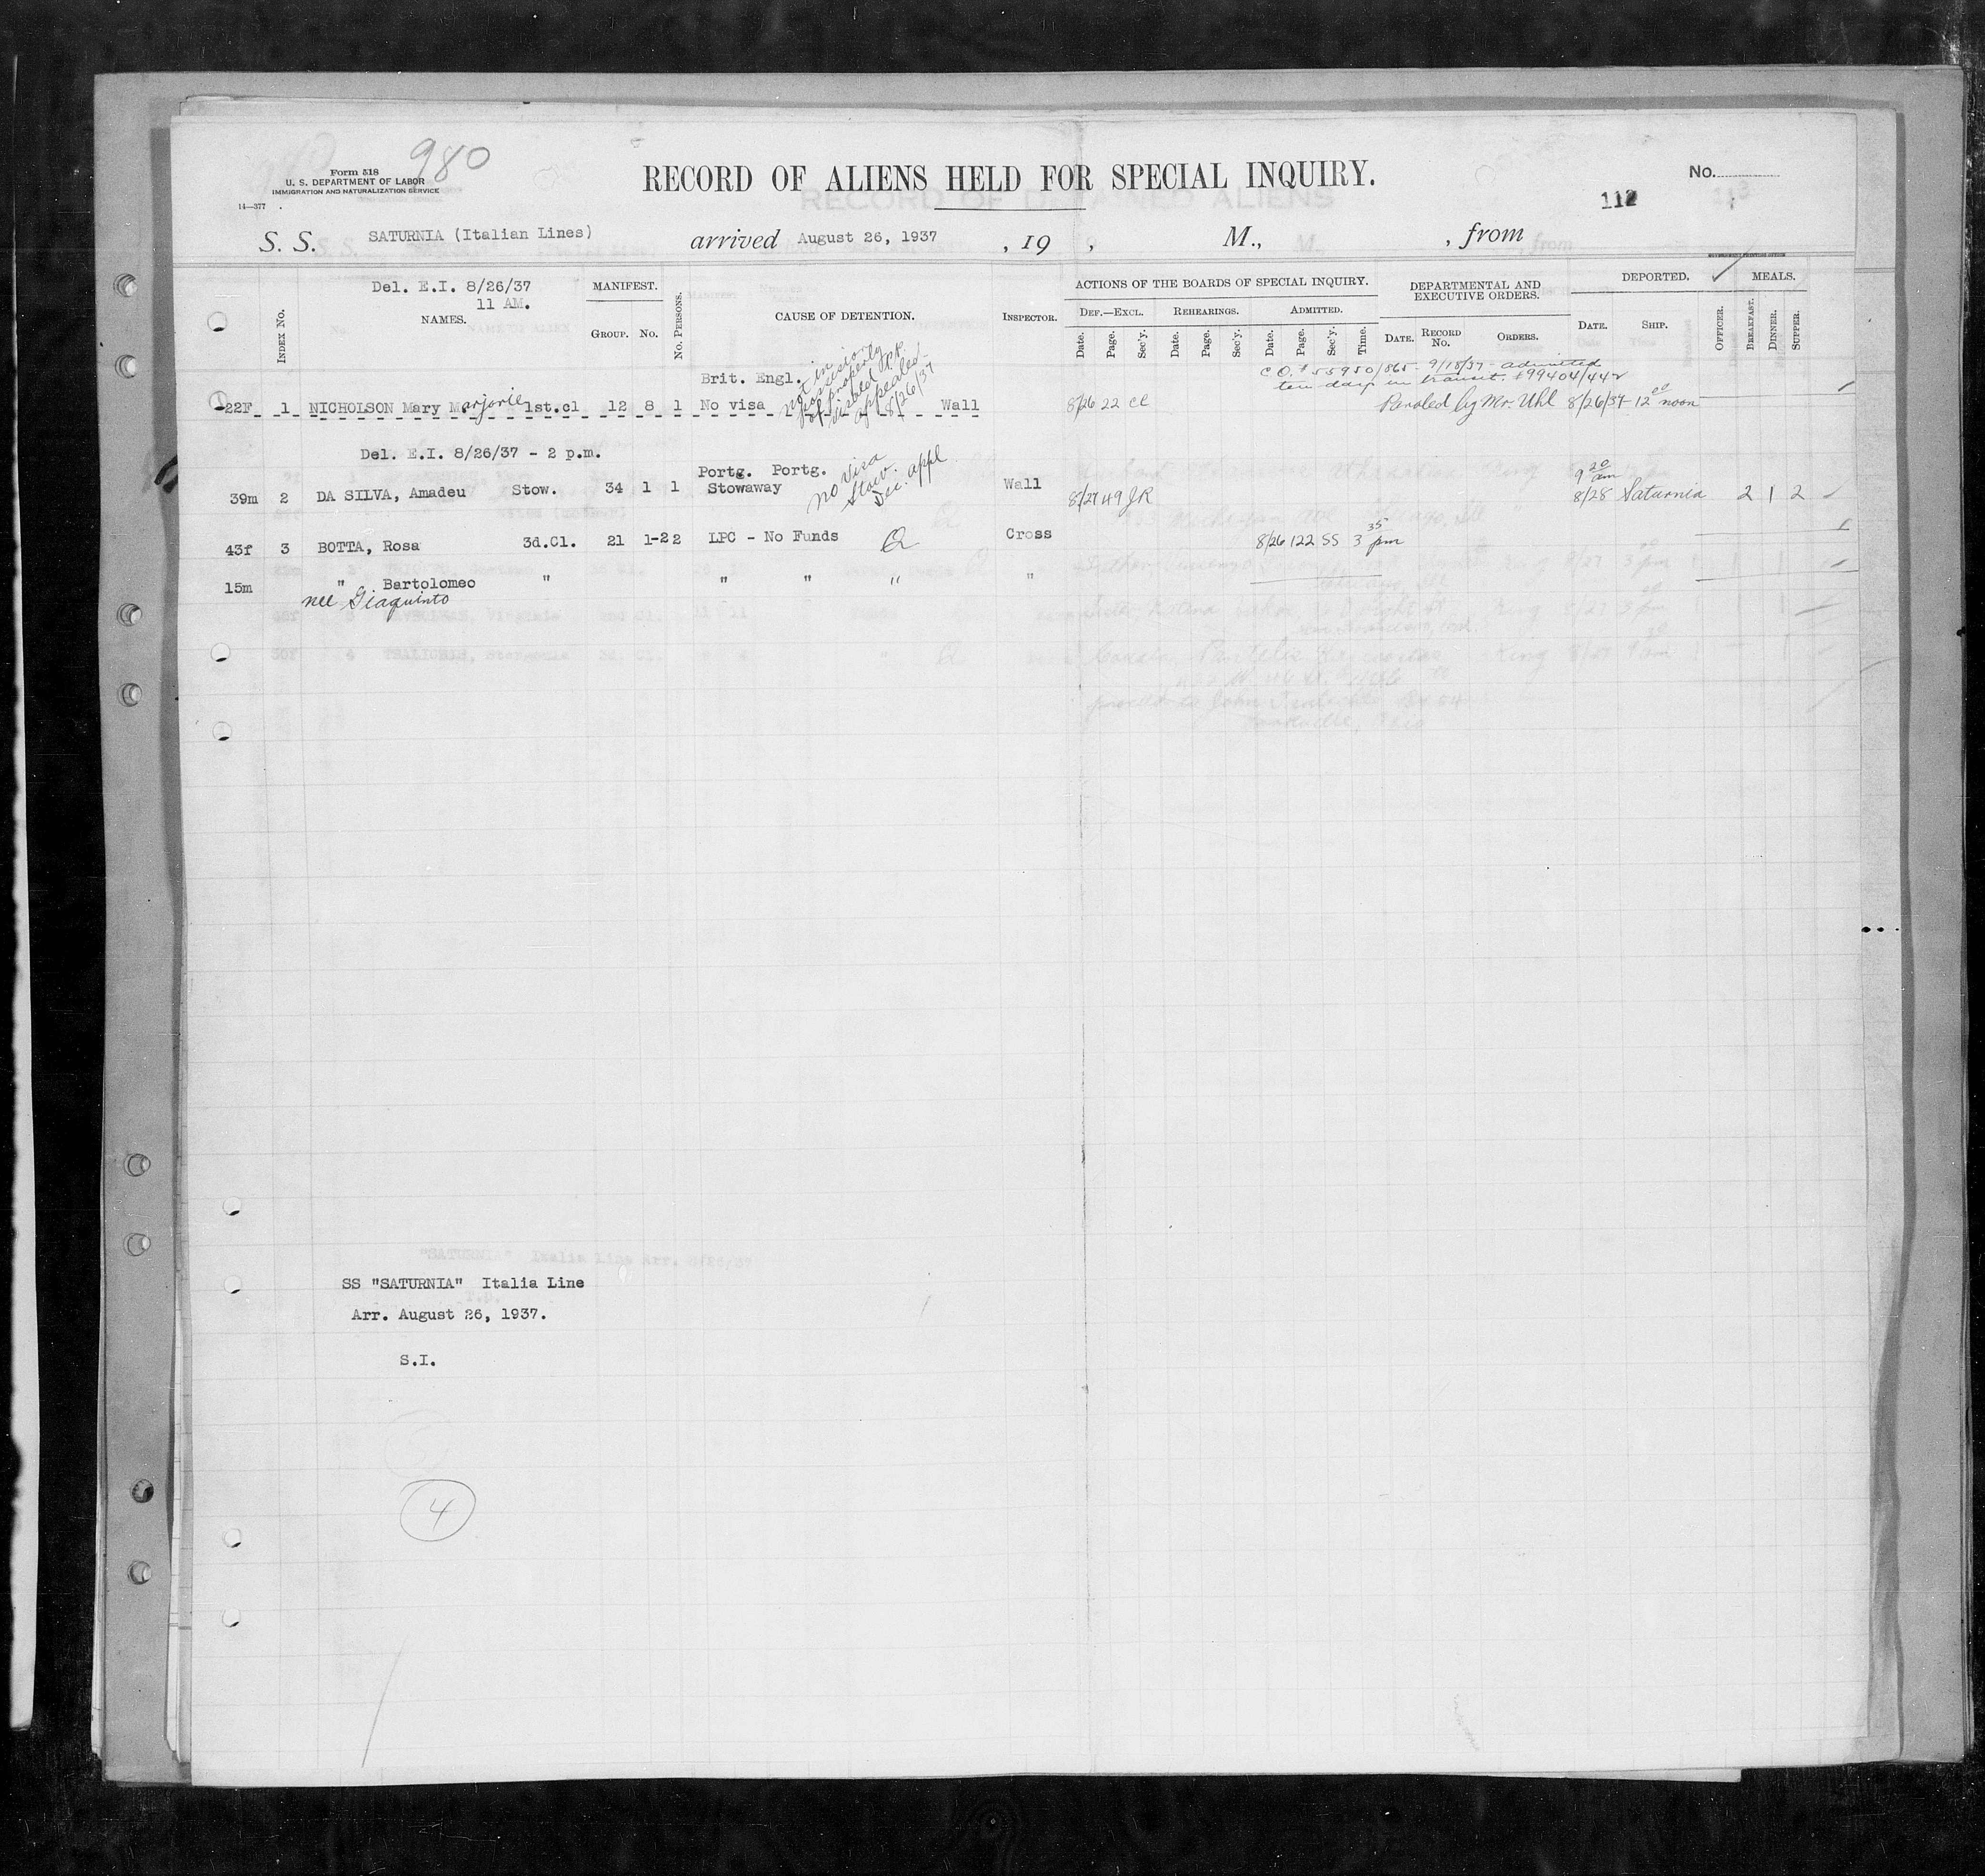 980
Form 518
U. S. DEPARTMENT OF LABOR
IMMIGRATION AND NATURALIZATION SERVICE
14—377
RECORD OF ALIENS HELD FOR SPECIAL INQUIRY.
No.
112
S. S. SATURNIA (Italian Lines) arrived August 26, 1937 , 19 , M., , from
Del. E.I. 8/26/37
11 AM.
INDEX No. NAMES. MANIFEST. GROUP. No. No. PERSONS. CAUSE OF DETENTION. INSPECTOR.
ACTIONS OF THE BOARDS OF SPECIAL INQUIRY.
DEF.—EXCL. REHEARINGS. ADMITTED.
Date. Page. Sec'y. Date. Page. Sec'y. Date. Page. Sec'y. Time.
DEPARTMENTAL AND EXECUTIVE ORDERS.
DATE. RECORD No. ORDERS.
DEPORTED.
DATE. SHIP.
OFFICER.
MEALS.
BREAKFAST. DINNER. SUPPER.
Brit. Engl. not in possession of properly visaed P.P. appealed 8/26/37
C.O. # 55950/865 - 9/18/37 - admitted
ten days in transit. #99404/442
22F 1 NICHOLSON Mary Marjorie 1st.cl 12 8 1 No visa Wall 8/26 22 cl Paroled by Mr. Uhl 8/26/37 - 12 00 noon
Del. E.I. 8/26/37 - 2 p.m.
Portg. Portg. no visa Stow. appl 9 20 am
39m 2 DA SILVA, Amadeu Stow. 34 1 1 Stowaway Wall 8/27 49 JR 8/28 Saturnia 2 1 2
43f 3 BOTTA, Rosa 3d.Cl. 21 1-2 2 LPC - No Funds Cross 8/26 122 SS 3 35 pm
15m " Bartolomeo " " " " "
nee Giaquinto
SS "SATURNIA" Italia Line
Arr. August 26, 1937.
S.I.
4